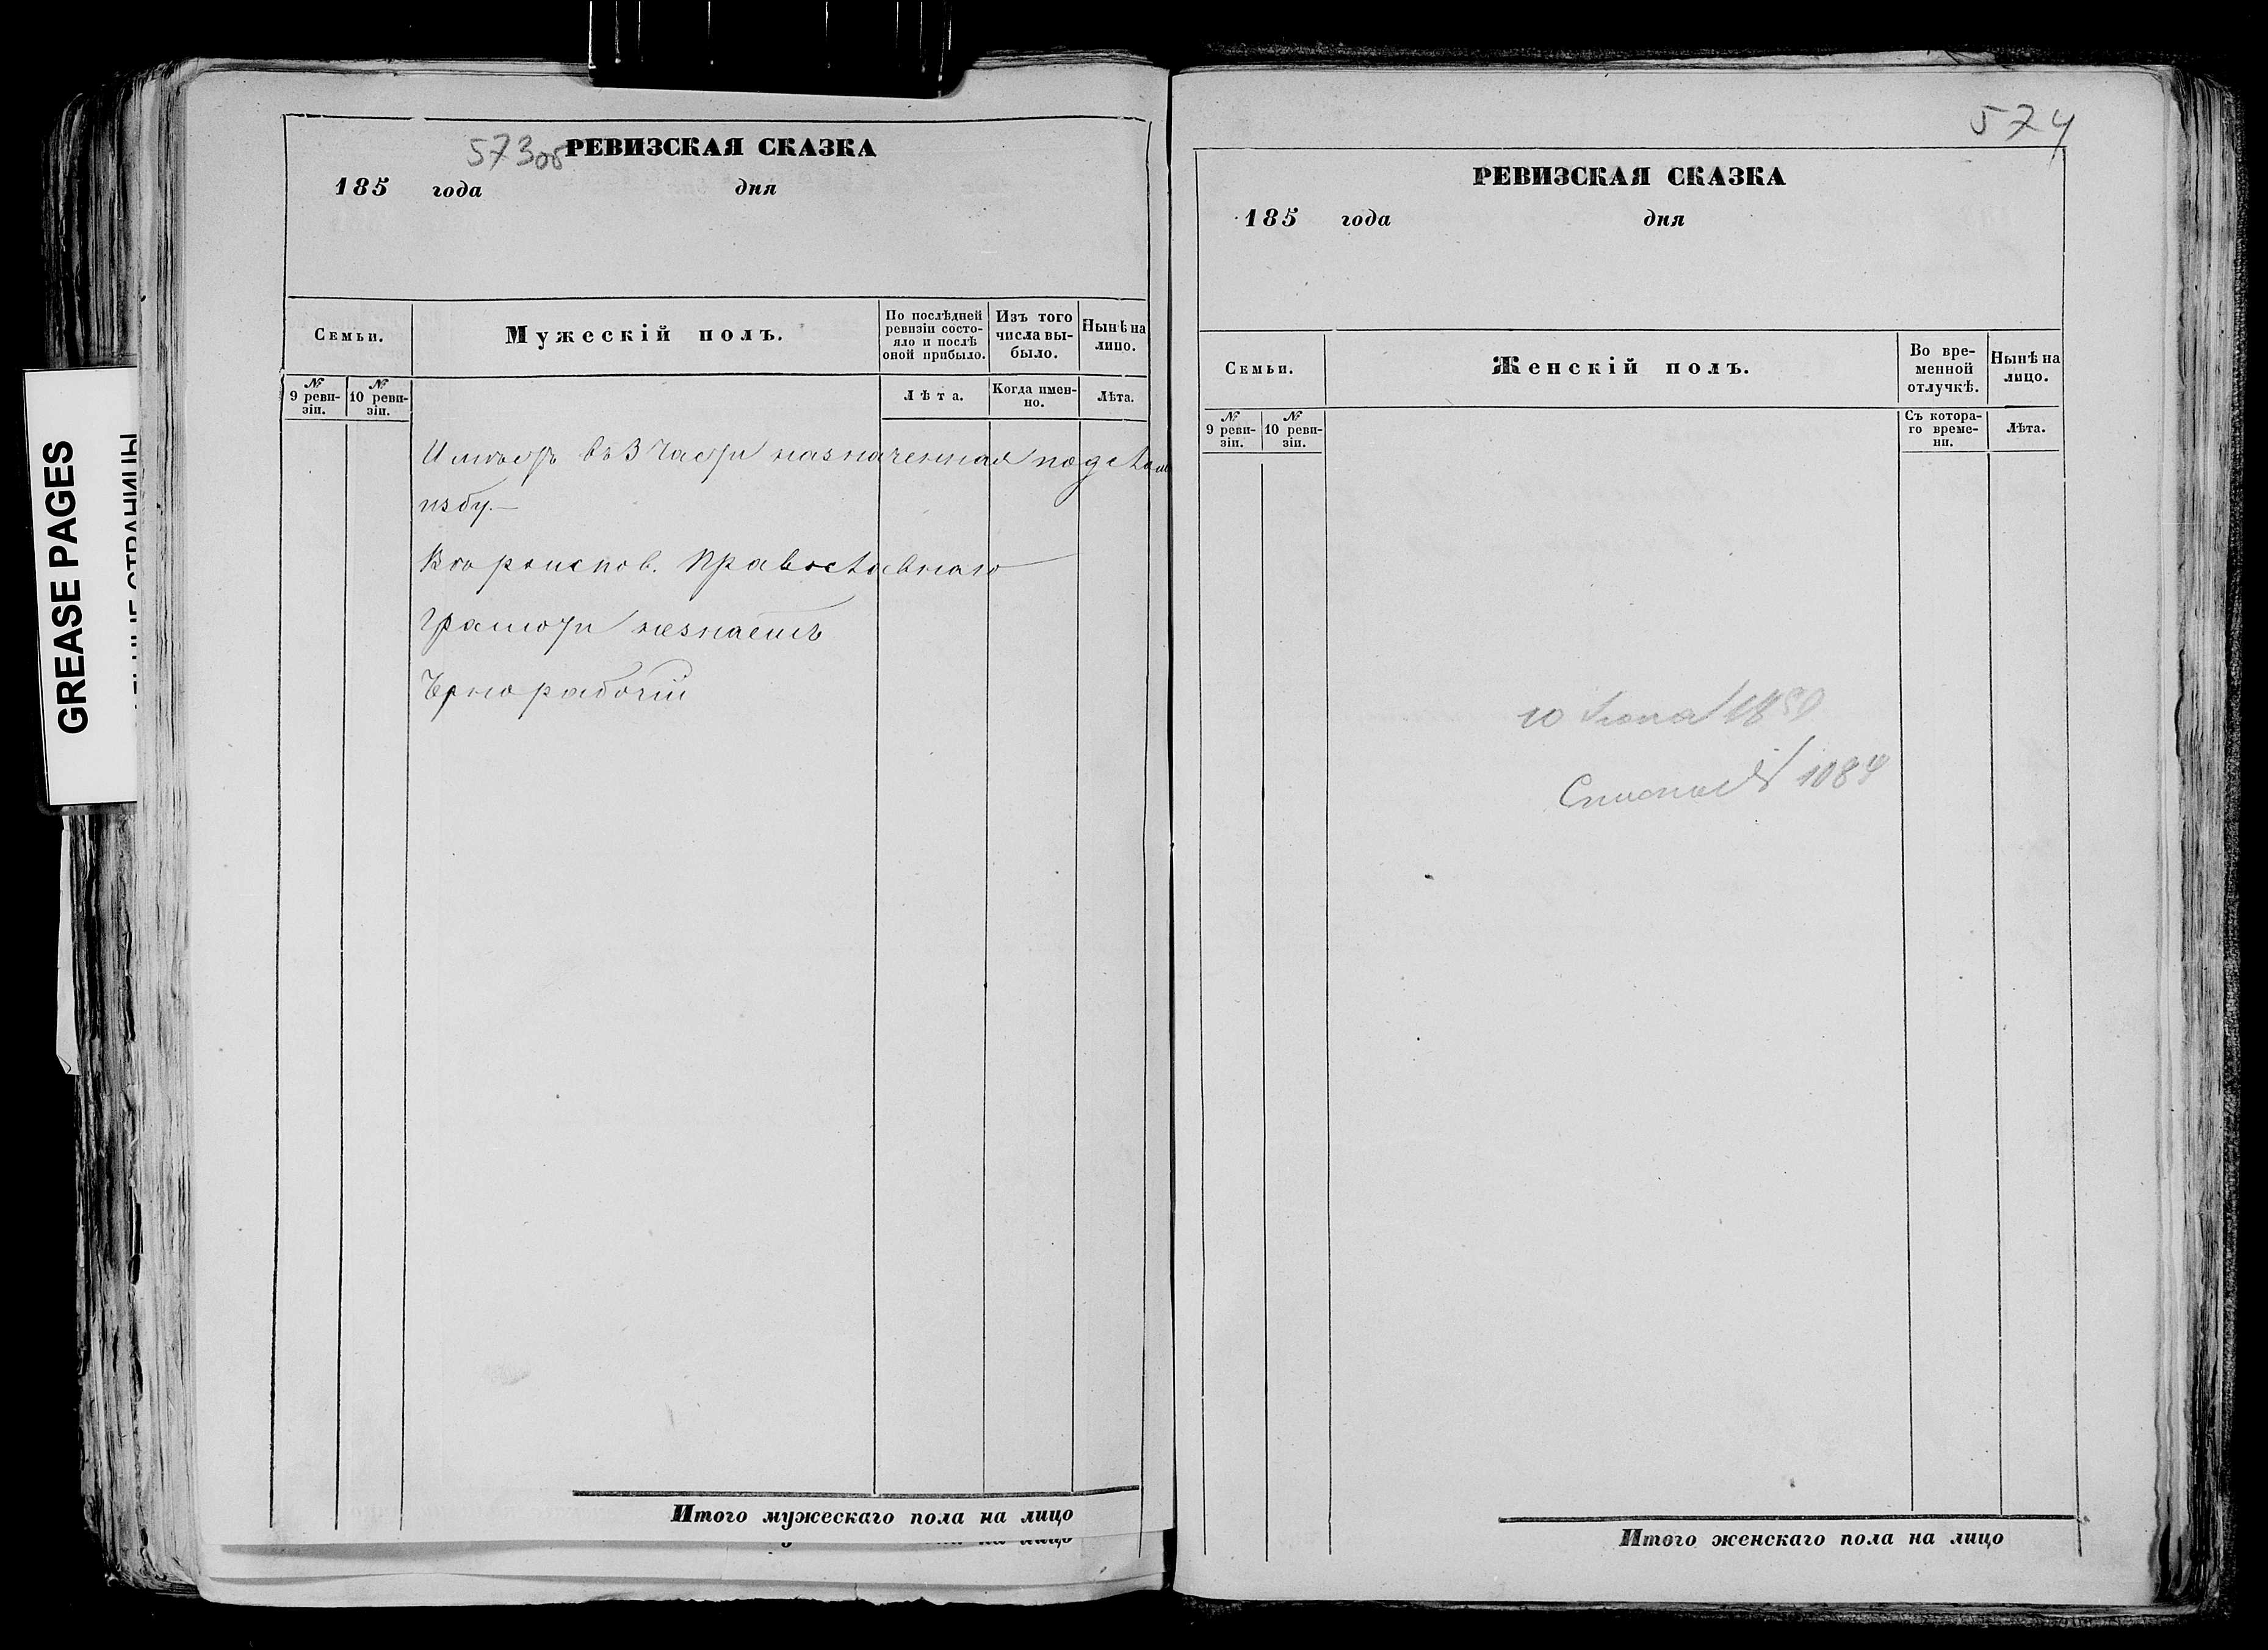 573об РЕВИЗСКАЯ СКАЗКА
185 года дня
Семьи.
Мужескій полъ.
По послѣдней ревизіи состо-
яло и послѣ
оной прибыло.
Изъ того
числа вы-
было.
Нынѣ на
лицо.
№
9 реви-
зіи.
№
10 реви-
зіи.
Лѣта.
Когда имен-
но.
Лѣта.
Имѣетъ въ 3 части назначенная под
избу.—
Вѣроиспов. Православнаго
Грамоти незнаетъ
Чернорабочій
Итого мужескаго пола на лицо
на лицо
574
РЕВИЗСКАЯ СКАЗКА
185 года дня
Семьи.
Женскій полъ.
Во вре-
менной
отлучкѣ.
Нынѣ на
лицо.
№
9 реви-
зіи.
№
10 реви-
зіи.
Съ котора-
го време-
ни.
Лѣта.
10 185
1084
Итого женскаго пола на лицо
GREASE PAGES
СТРАНИЦЫ